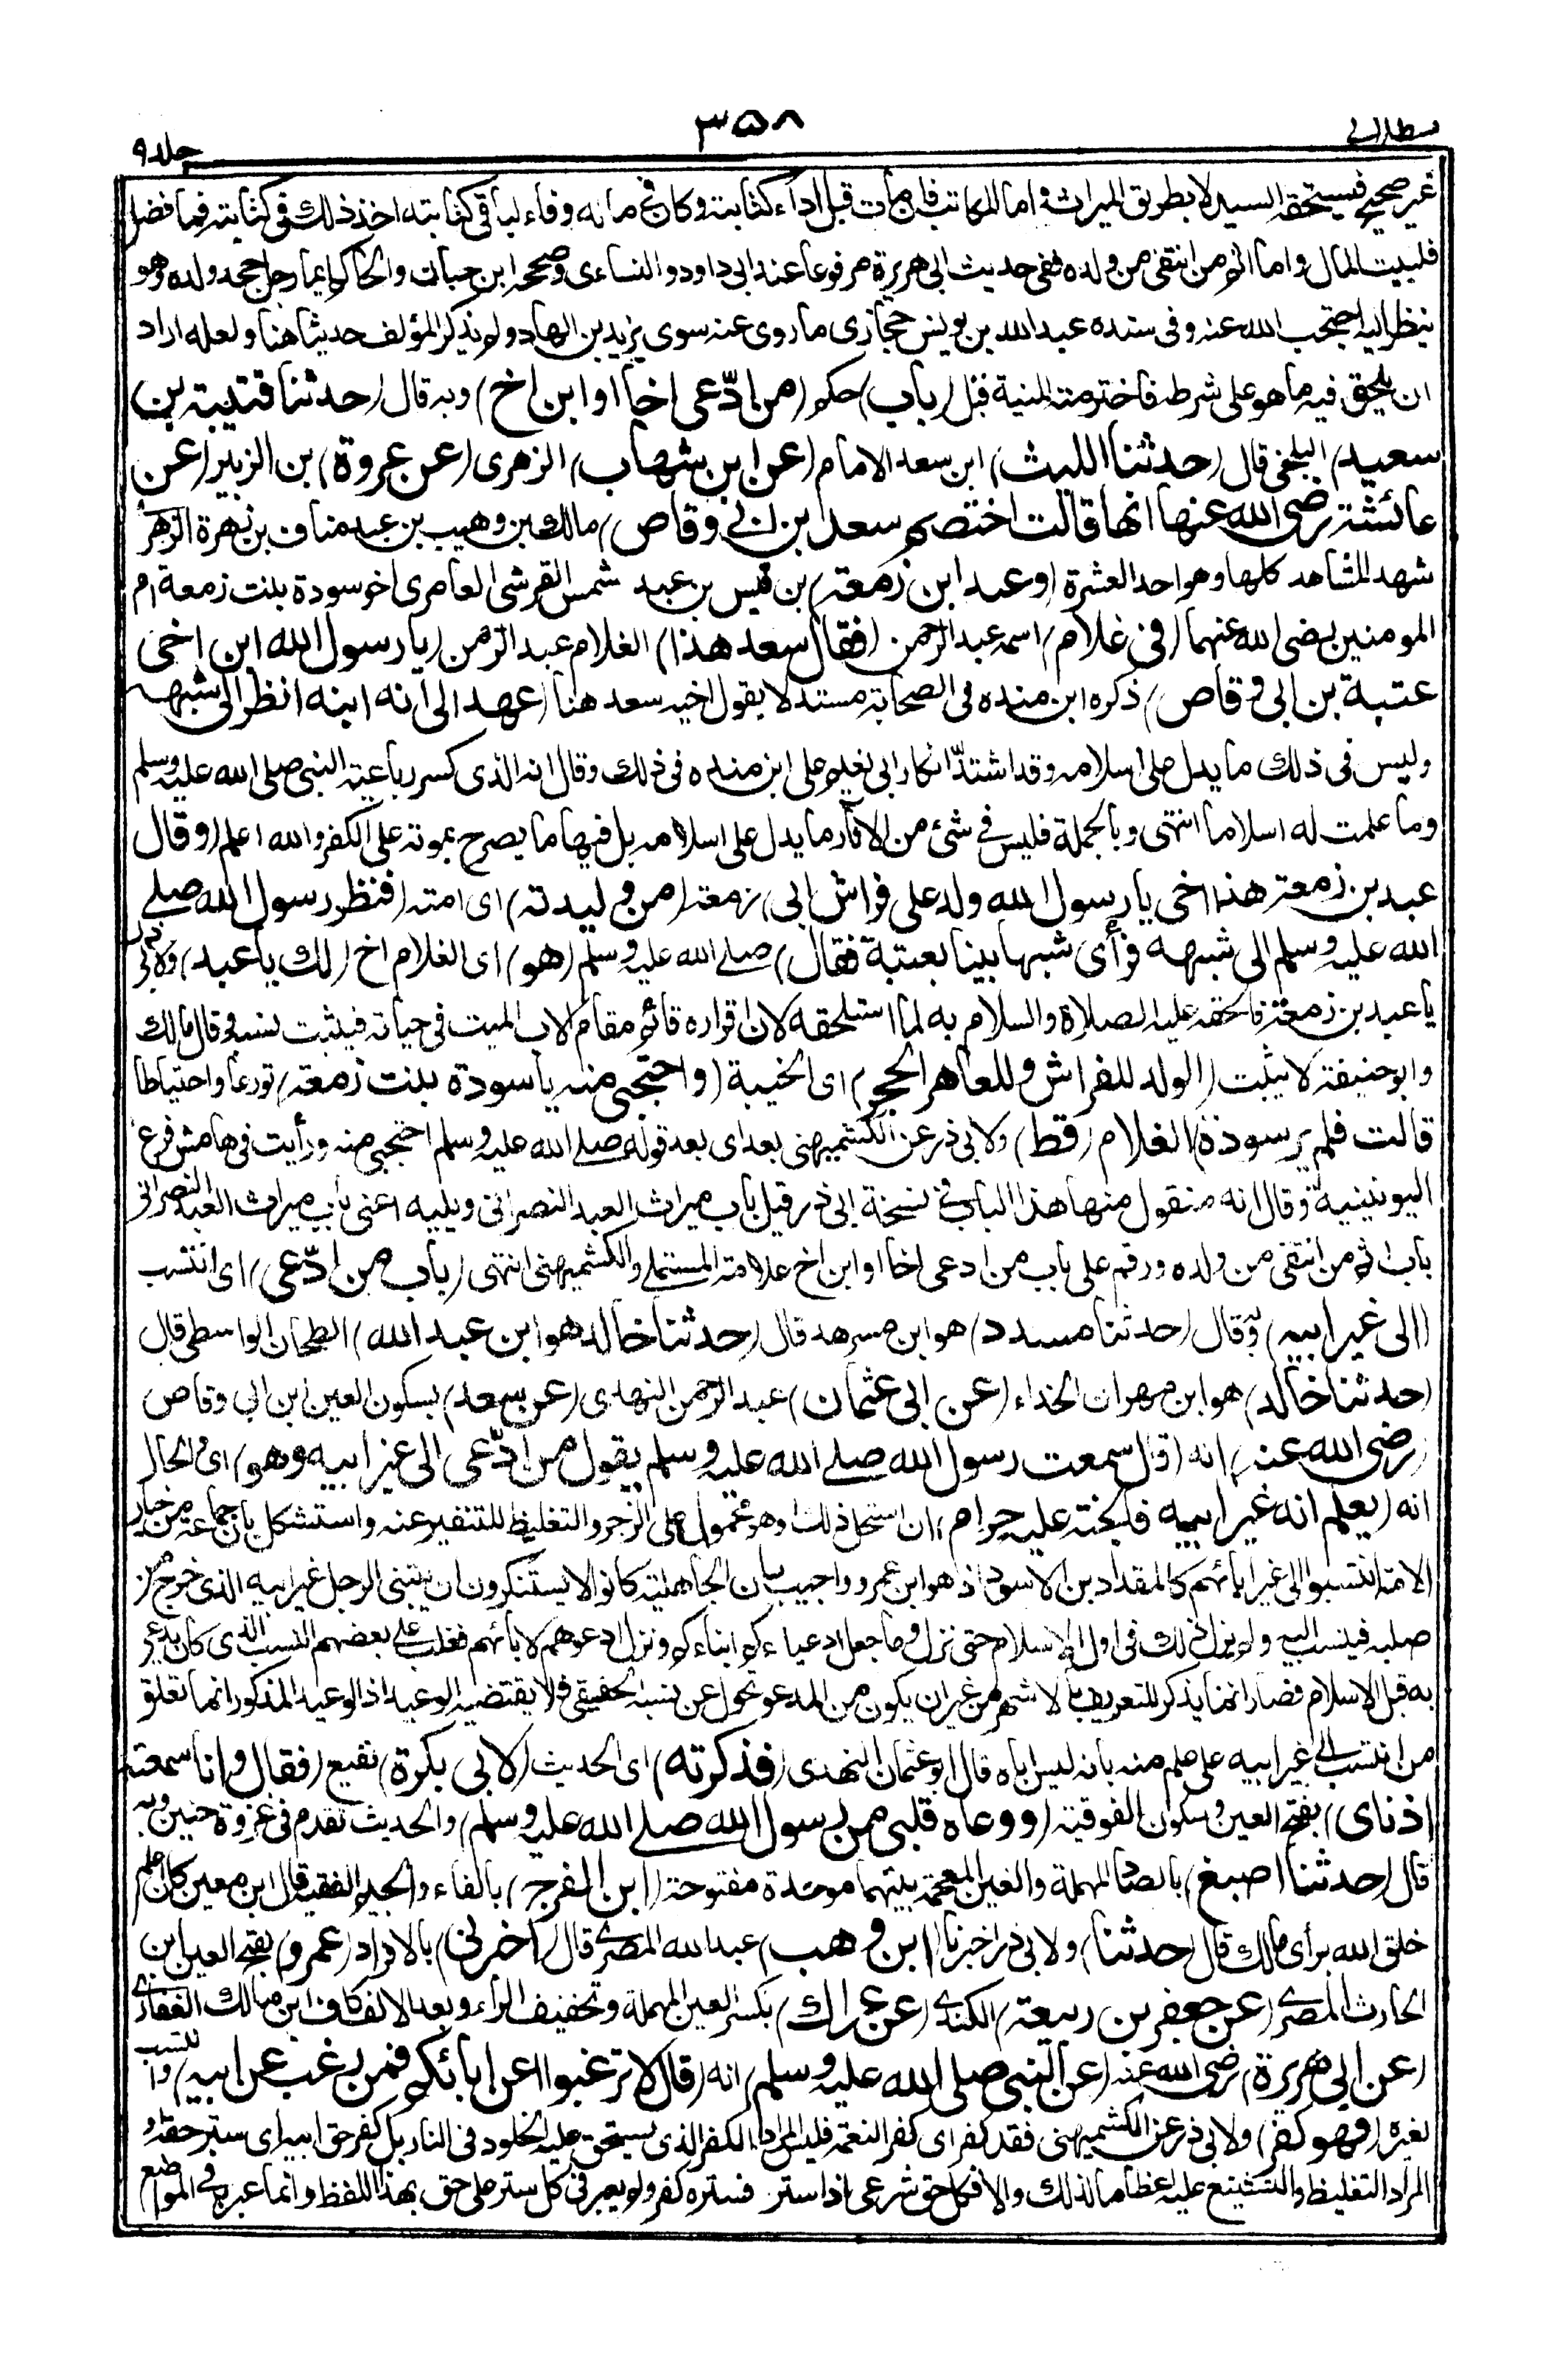 قسطلانى
٣٥٨
جلد ٩
غير صحيح فيستحقه السيد لا بطريق الميراث و اما المكاتب فان مات قبل اداء كتابته و كان فى ماله وفاء لباقى كتابته اخذ ذلك فى كتابته فما فضل
فلبيت المال و اما اثم من انتفى من ولده ففى حديث ابى هريرة مرفوعا عند ابى داود و النساءى و صححه ابن حبان والحاكم ايما رجل جحد ولده و هو
ينظر اليه احتجب الله عنه و فى سنده عبد الله بن يونس حجازى ما روى عنه سوى يزيد بن الهاد و لم يذكر المؤلف حديثا هنا و لعله اراد
ان يلحق فيه ما هو على شرطه فاخترمته المنية قبل (باب) حكم (من ادّعى اخا او ابن اخ) و به قال (حدثنا قتيبة بن
سعيد) البلخى قال (حدثنا الليث) ابن سعد الامام (عن ابن شهاب) الزهرى (عن عروة) بن الزبير (عن
عائشة رضى الله عنها انها قالت اختصم سعد بن ابى وقاص) مالك بن وهيب بن عبد مناف بن زهرة الزهرى
شهد المشاهد كلها و هو احد العشرة (و عبد ابن زمعة) بن قيس بن عبد شمس القرشى العامرى اخو سودة بنت زمعة ام
المومنين رضى الله عنهما (فى غلام) اسمه عبد الرحمن (فقال سعد هذا) الغلام عبد الرحمن (يا رسول الله ابن اخى
عتبة بن ابى وقاص) ذكره ابن منده فى الصحابة مستدلا بقول اخيه سعد هنا (عهد الى انه ابنه انظر الى شبهه
و ليس فى ذلك ما يدل على اسلامه و قد اشتدّ انكار ابى نعيم على ابن منده فى ذلك و قال انه الذى كسر رباعية النبى صلى الله عليه وسلم
و ما علمت له اسلاما انتهى و بالجملة فليس فى شئ من الآثار ما يدل على اسلامه بل فيها ما يصرح بموته على الكفر و الله اعلم (و قال
عبد بن زمعة هذا اخى يا رسول الله ولد على فراش ابى) زمعة (من وليدته) اى امته (فنظر رسول الله صلى
الله عليه وسلم الى شبهه فرأى شبها بينا بعتبة فقال) صلى الله عليه وسلم (هو) اى الغلام اخ (لك يا عبد) ولابى ذر
يا عبد بن زمعة فالحقه عليه الصلاة و السلام به لما استلحقه لان اقراره قائم مقام الاب الميت فى حياته فيثبت نسبه و قال مالك
و ابو حنيفة لا يثبت (الولد للفراش و للعاهر الحجر) اى الخيبة (و احتجبى منه يا سودة بنت زمعة) تورعا و احتياطا
قالت فلم ير سودة) الغلام (قط) ولابى ذر عن الكشميهنى بعد اى بعد قوله صلى الله عليه وسلم احتجبى منه و رأيت فى هامش فرع
اليونينية و قال انه منقول منها هذا الباب فى نسخة ابى ذر قبل باب ميراث العبد النصرانى و يليه اعنى باب ميراث العبد النصرانى
باب اثم من انتفى من ولده و رقم على باب من ادعى اخا او ابن اخ علامة المستملى و الكشميهنى انتهى (باب من ادّعى) اى انتسب
(الى غير ابيه) و به قال (حدثنا مسدد) هو ابن مسرهد قال (حدثنا خالد هو ابن عبد الله) الطحان الواسطى قال
(حدثنا خالد) هو ابن مهران الحذاء (عن ابى عثمان) عبد الرحمن النهدى (عن سعد) بسكون العين ابن ابى وقاص
(رضى الله عنه) انه (قال سمعت رسول الله صلى الله عليه وسلم يقول من ادّعى الى غير ابيه و هو) اى و الحال
انه (يعلم انه غير ابيه فالجنة عليه حرام) ان استحل ذلك او هو محمول على الزجر و التغليظ للتنفير عنه و استشكل بان جماعة من خيار
الامة انتسبوا الى غير آبائهم كالمقداد بن الاسود اذ هو ابن عمرو و اجيب بان الجاهلية كانوا لا يستنكرون ان يتبنى الرجل غير ابيه الذى خرج من
صلبه فينسب اليه و لم يزل ذلك فى اول الاسلام حتى نزل و ما جعل ادعياءكم ابناءكم و نزل ادعوهم لآبائهم فغلب على بعضهم النسب الذى كان يدعى
به قبل الاسلام فصار انما يذكر للتعريف بالاشهر من غير ان يكون من المدعو تحول عن نسبه الحقيقى فلا يقتضيه الوعيد اذ الوعيد المذكور انما تعلق
من انتسب الى غير ابيه على علم منه بانه ليس اباه قال ابو عثمان النهدى (فذكرته) اى الحديث (لابى بكرة) نفيع (فقال و انا سمعته
اذناى) بفتح العين و سكون الفوقية (و وعاه قلبى من رسول الله صلى الله عليه وسلم) و الحديث تقدم فى غزوة حنين و به
قال (حدثنا اصبغ) بالصاد المهملة و الغين المعجمة بينهما موحدة مفتوحة (ابن الفرج) بالفاء و الجيم الفقيه قال ابن معين كان اعلم
خلق الله برأى مالك قال (حدثنا) ولابى ذر اخبرنا (ابن وهب) عبد الله المصرى قال (اخبرنى) بالافراد (عمرو) بفتح العين ابن
الحارث المصرى (عن جعفر بن ربيعة) الكندى (عن عراك) بكسر العين المهملة و تخفيف الراء و بعد الالف كاف ابن مالك الغفارى
(عن ابى هريرة) رضى الله عنه (عن النبى صلى الله عليه وسلم) انه (قال لا ترغبوا عن آبائكم فمن رغب عن ابيه) و انتسب
لغيره (فهو كفر) ولابى ذر عن الكشميهنى فقد كفر اى كفر النعمة فليس المراد الكفر الذى يستحق عليه الخلود فى النار بل كفر حق ابيه اى ستر حقه او
المراد التغليظ و التشنيع عليه اعظاما لذلك و الا فكل حق شرعى اذا ستر فستره كفر و لم يعبر فى كل ستر على حق بهذا اللفظ و انما عبر به فى المواضع